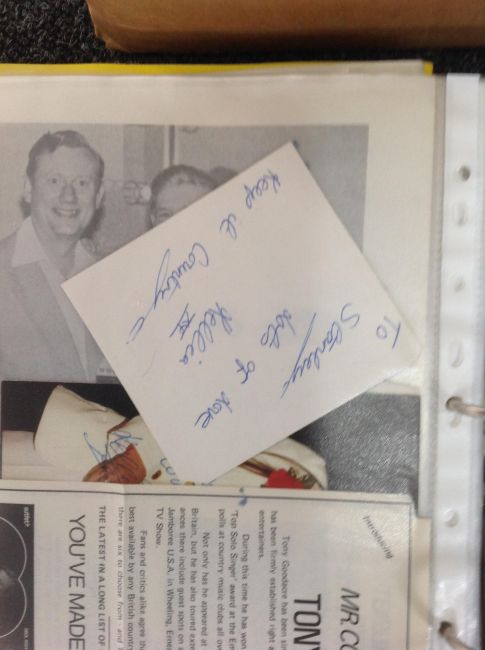 To
Stanley
lots of love
Kellie
XX
Keep it Country
introducing
MR.CO
TON
Tony Goodacre has been
has been firmly established right a
entertainers.
During this time he has won
'Top Solo Singer' award at the Em
polls at country music clubs all ov
Not only has he appeared at
Britain, but he has also toured exte
ances there include guest spots on
Jamboree U.S.A. in Wheeling,
TV Show.
Fans and critics alike agree th
best available by any British countr
there are six to choose from - and
THE LATEST IN A LONG LIST OF
YOU'VE MADE